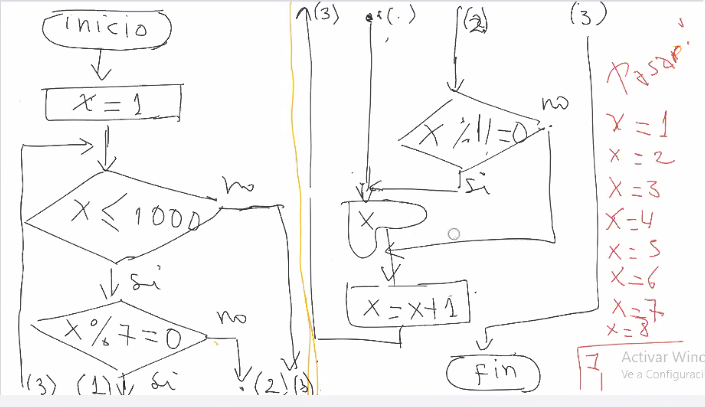 inicio
x = 1
x ≤ 1000
no
si
x % 7 = 0
no
(3) (1) si (2) (3)
(3)
(2)
(3)
x % 11 = 0
no
si
x
x = x+1
fin
x = 1
x = 2
x = 3
x = 4
x = 5
x = 6
x = 7
x = 8
7
Activar Wind
Ve a Configuraci